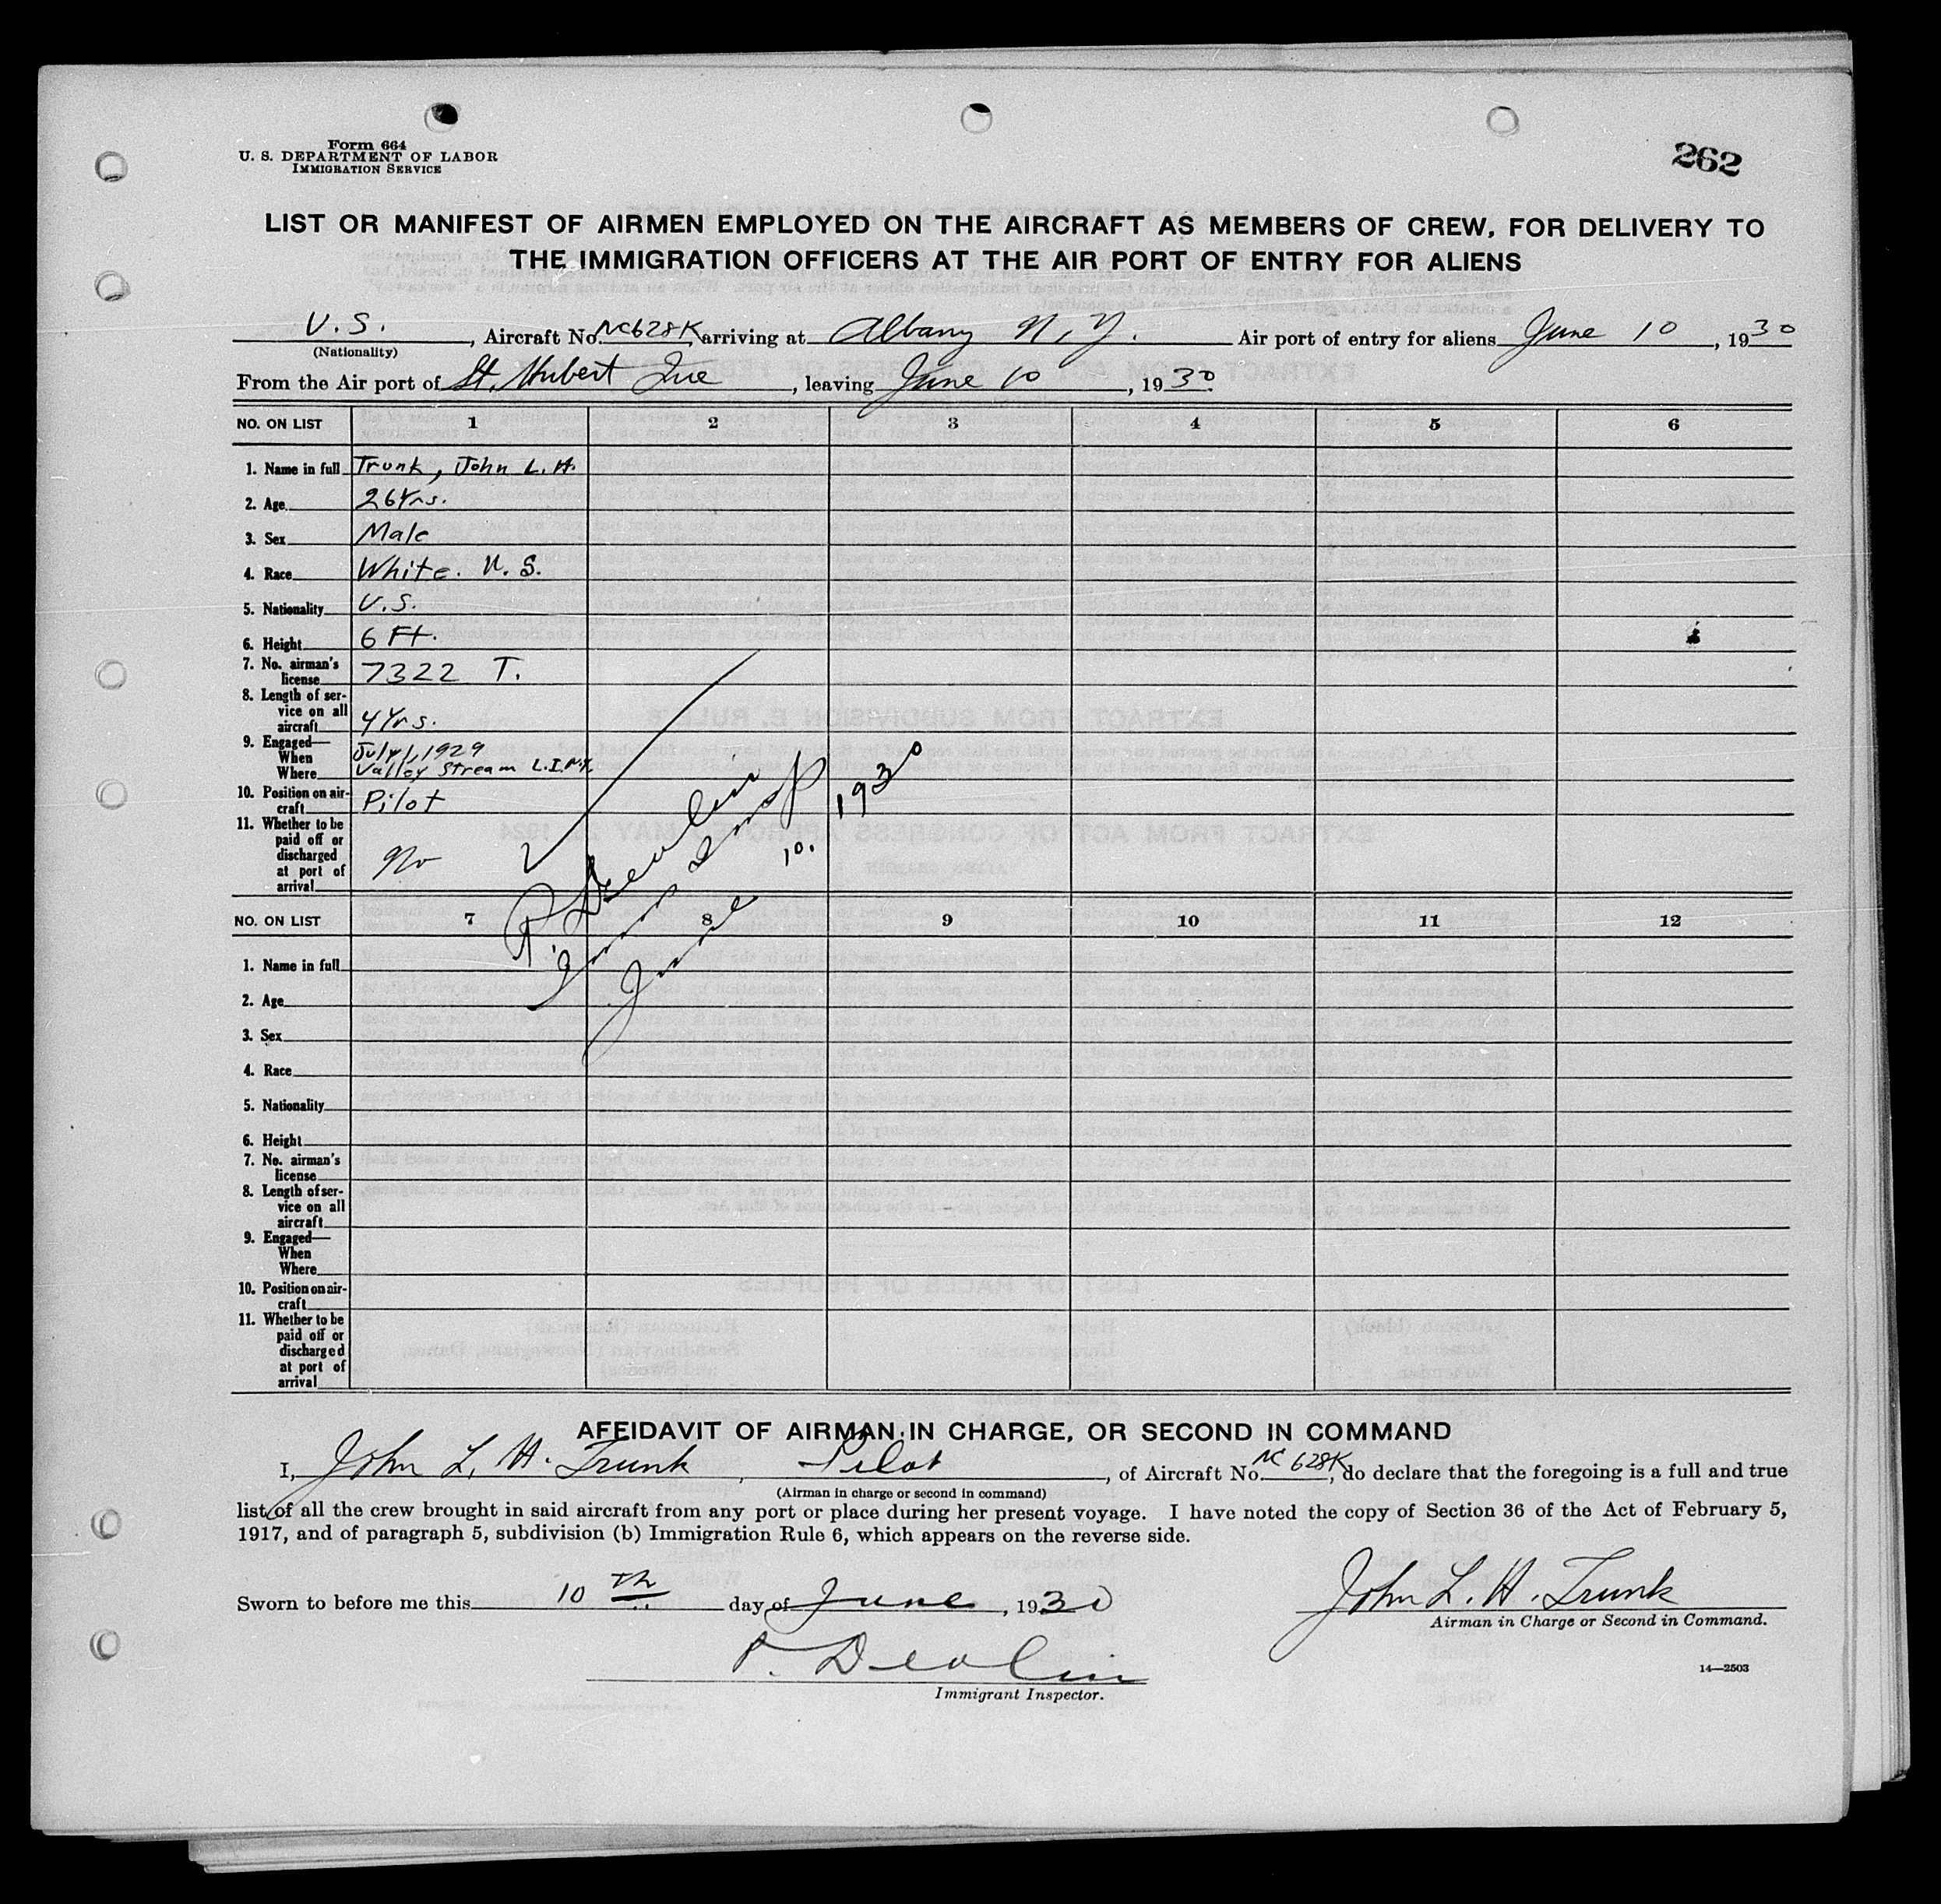 Form 664
U. S. DEPARTMENT OF LABOR
IMMIGRATION SERVICE
262
LIST OR MANIFEST OF AIRMEN EMPLOYED ON THE AIRCRAFT AS MEMBERS OF CREW, FOR DELIVERY TO
THE IMMIGRATION OFFICERS AT THE AIR PORT OF ENTRY FOR ALIENS
U. S. , Aircraft No. NC628K arriving at Albany N. Y. Air port of entry for aliens June 10 , 1930
(Nationality)
From the Air port of St. Hubert Que , leaving June 10 , 1930
NO. ON LIST 1 2 3 4 5 6
1. Name in full Trunk, John L. H.
2. Age 26 Yrs.
3. Sex Male
4. Race White. U. S.
5. Nationality U.S.
6. Height 6 Ft.
7. No. airman's
license 7322 T.
8. Length of ser-
vice on all
aircraft 4 Yrs.
9. Engaged—
When July 1, 1929
Where Valley Stream L.I. N.Y.
10. Position on air-
craft Pilot
11. Whether to be
paid off or
discharged
at port of
arrival No
P. Devlin
Immig Insp
June 10. 1930
NO. ON LIST 7 8 9 10 11 12
1. Name in full
2. Age
3. Sex
4. Race
5. Nationality
6. Height
7. No. airman's
license
8. Length of ser-
vice on all
aircraft
9. Engaged—
When
Where
10. Position on air-
craft
11. Whether to be
paid off or
discharged
at port of
arrival
AFFIDAVIT OF AIRMAN IN CHARGE, OR SECOND IN COMMAND
I, John L. H. Trunk , Pilot , of Aircraft No. NC 628K, do declare that the foregoing is a full and true
(Airman in charge or second in command)
list of all the crew brought in said aircraft from any port or place during her present voyage. I have noted the copy of Section 36 of the Act of February 5,
1917, and of paragraph 5, subdivision (b) Immigration Rule 6, which appears on the reverse side.
Sworn to before me this 10 th day of June , 1930
John L. H. Trunk
Airman in Charge or Second in Command.
P. Devlin
Immigrant Inspector.
14—2503